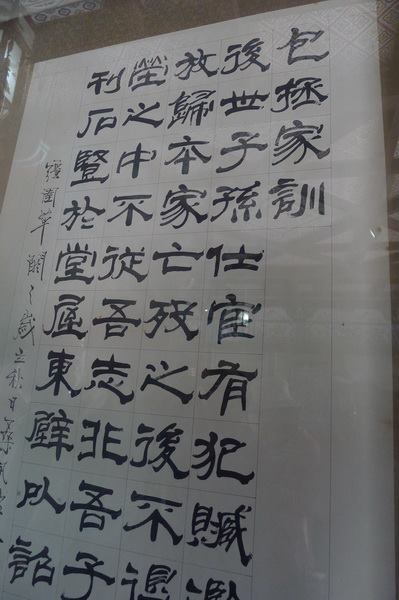 包拯家訓
後世子孫仕宦有犯贓濫
放歸本家亡歿之後不
塋之中不從吾志非吾子
刊石豎於堂屋東壁以詔
之歲立秋日